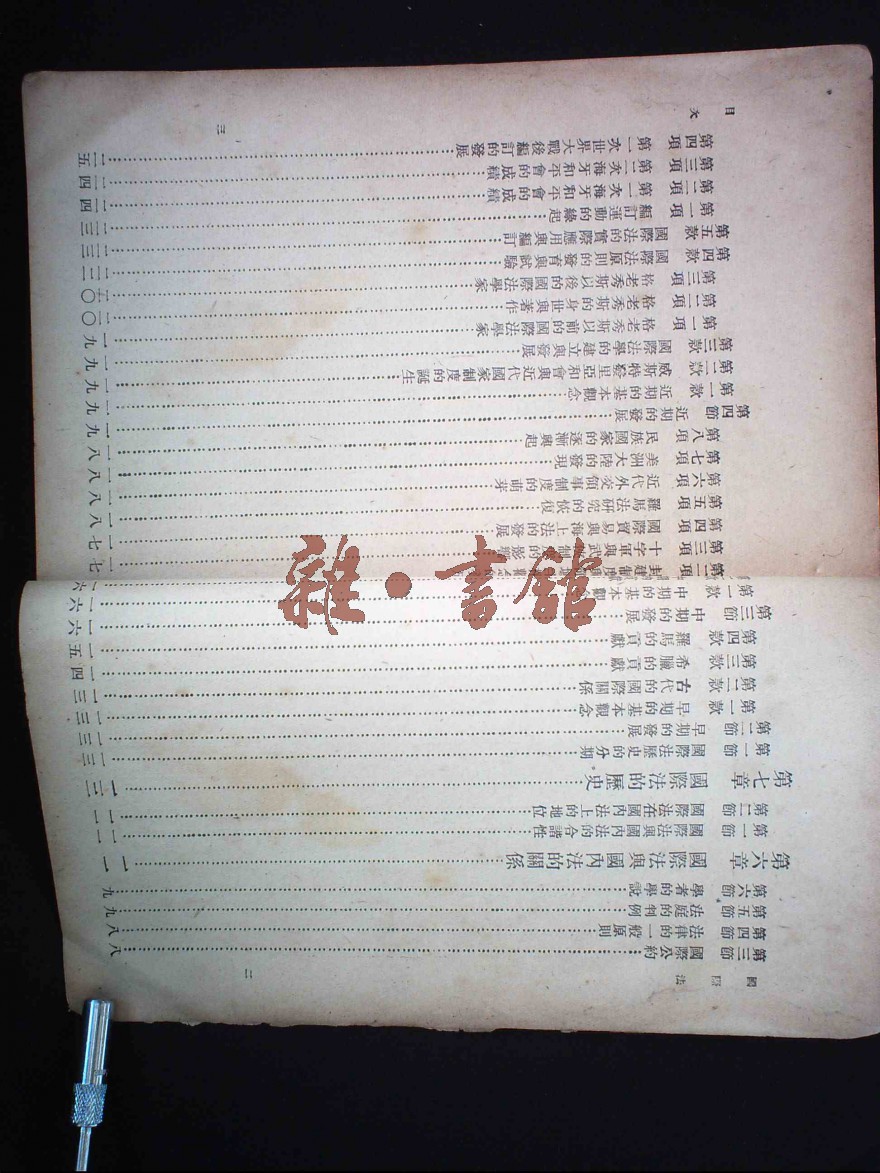 國際法 二
第三節 國際公約 八
第四節 法律的一般原則 八
第五節 法庭的判例 九
第六節 學者的學說 九
第六章 國際法與國內法的關係 一一
第一節 國際法與國內法的合諧性 一一
第二節 國際法在國內法上的地位 一一
第七章 國際法的歷史 一三
第一節 國際法歷史的分期 一三
第二節 早期的發展 一三
第一款 早期的基本觀念 一三
第二款 古代的國際關係 一三
第三款 希臘的貢獻 一四
第四款 羅馬的貢獻 一五
第三節 中期的發展 一六
第一款 中期的基本觀 一六
第二項 封建制度
第三項 十字軍與武 制 的影響 一七
第四項 國際貿易與海上法的發展 一七
第五項 羅馬法研究的恢復 一八
第六項 近代外交領事制度的萌芽 一八
第七項 美洲大陸的發現 一八
第八項 民族國家的逐漸興起 一八
第四節 近期的發展 一九
第一款 近期的基本觀念 一九
第二款 威斯特發里亞和會與近代國家制度的誕生 一九
第三款 國際法學的建立與發展 一九
第一項 格老秀斯以前的國際法學家 一九
第二項 格老秀斯的身世與著作 二〇
第三項 格老秀斯以後的國際法學家 二〇
第四款 國際法原則的發育與試驗 二二
第五款 國際法的實際應用與編訂 二三
第一項 編訂運動的緣起 二三
第二項 第一次海牙和平會的成績 二四
第三項 第二次海牙和平會的成績 二四
第四項 第一次世界大戰後編訂的發展 二五
目次 三
雜·書館